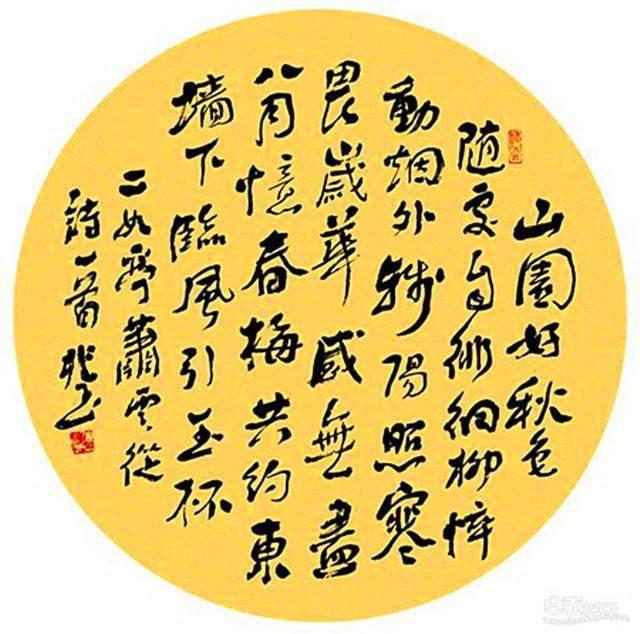 山園好秋色
随處自徘徊柳悴
動烟外殘陽照寒
畏歲華感無盡
八月憶春梅共約東
墻下臨風引玉杯
二如齊蕭雲從
詩一首